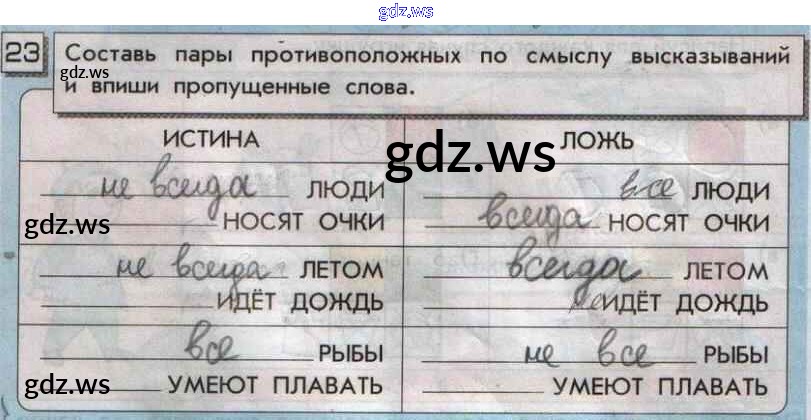 gdz.ws
23 Составь пары противоположных по смыслу высказываний
gdz.ws
и впиши пропущенные слова.
ИСТИНА ЛОЖЬ
gdz.ws
не всегда ЛЮДИ все ЛЮДИ
gdz.ws НОСЯТ ОЧКИ всегда НОСЯТ ОЧКИ
не всегда ЛЕТОМ всегда ЛЕТОМ
ИДЁТ ДОЖДЬ ИДЁТ ДОЖДЬ
все РЫБЫ не все РЫБЫ
gdz.ws УМЕЮТ ПЛАВАТЬ УМЕЮТ ПЛАВАТЬ